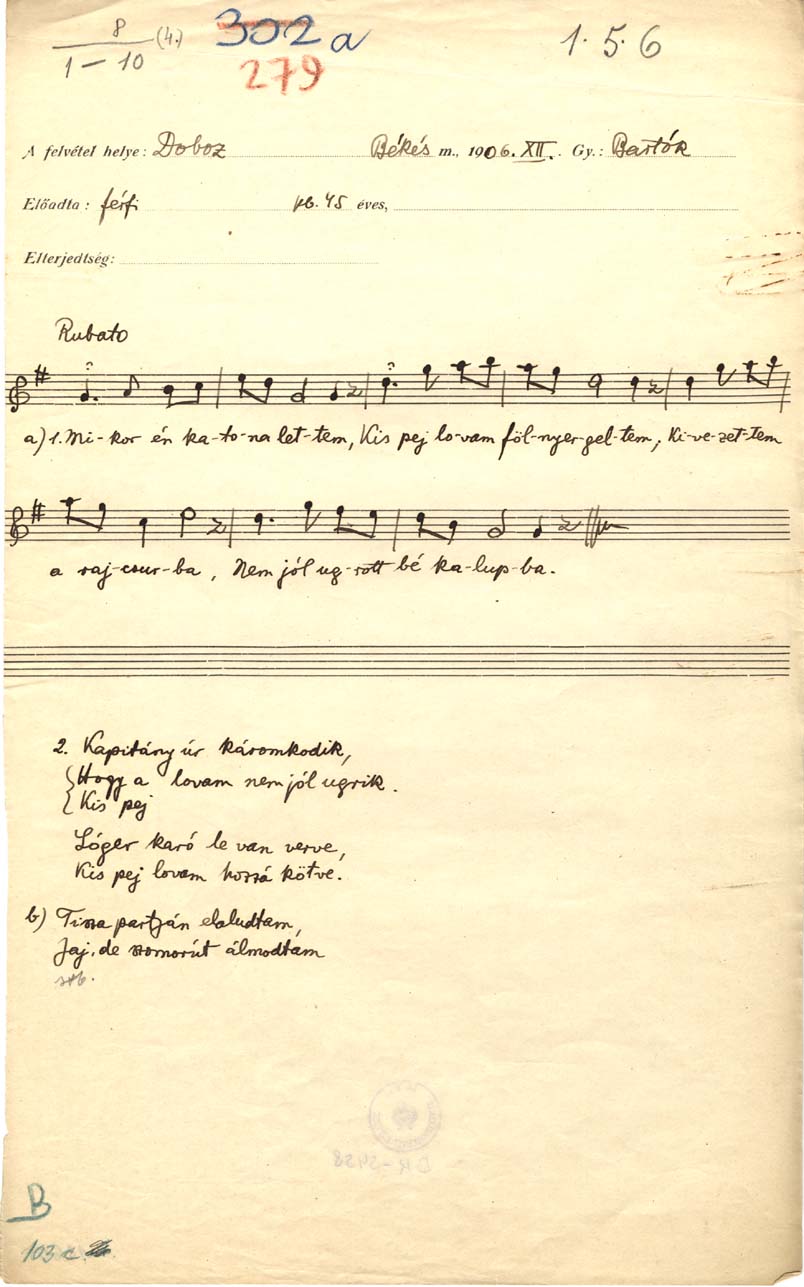 8 (4.) 302 a 1 · 5 · 6
1 – 10 279
A felvétel helye: Doboz Békés m., 1906. XII. Gy.: Bartók
Előadta: férfi kb. 45 éves,
Elterjedtség:
Rubato
a) 1. Mi-kor én ka-to-na let-tem, Kis pej lo-vam föl-nyer-gel-tem, Ki-ve-zet-tem
a raj-csur-ba, Nem jól ug-rott bé ka-lup-ba.
2. Kapitány úr káromkodik,
Hogy a lovam nem jól ugrik.
Kis pej
Lóger karó le van verve,
Kis pej lovam hozzá kötve.
b) Tisza partján elaludtam,
Jaj, de szomorút álmodtam
stb.
B
103 c